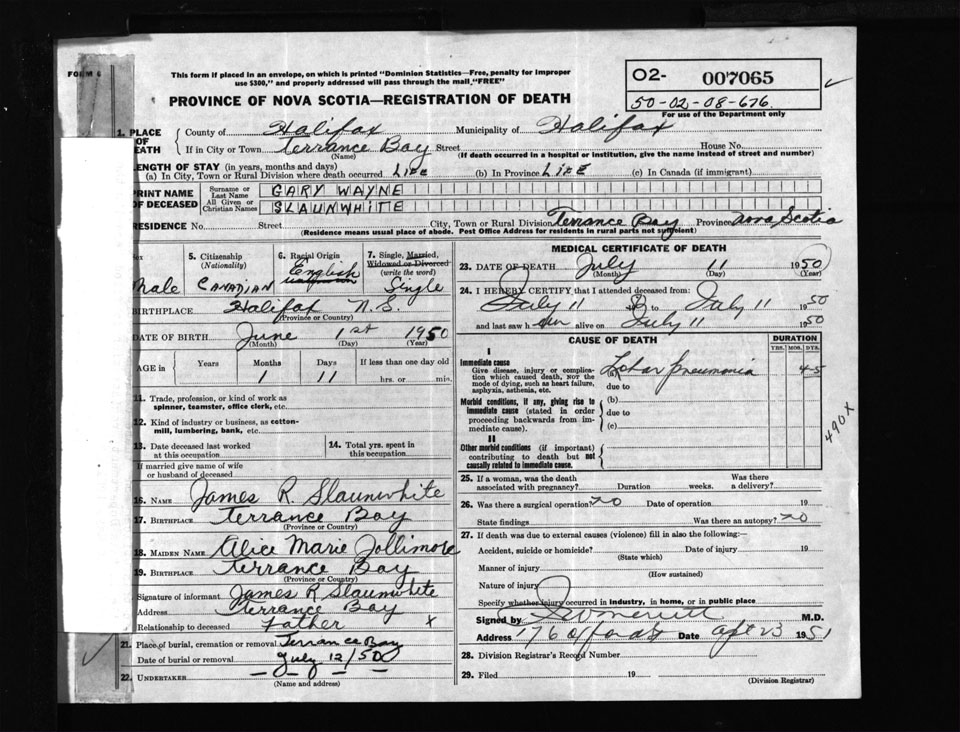 FORM 6
This form if placed in an envelope, on which is printed "Dominion Statistics—Free, penalty for improper
use $300," and properly addressed will pass through the mail "FREE"
PROVINCE OF NOVA SCOTIA—REGISTRATION OF DEATH
O2- 007065
50-02-08-676
For use of the Department only
1. PLACE OF DEATH
County of Halifax Municipality of Halifax
If in City or Town Terrance Bay Street House No.
(Name) (If death occurred in a hospital or institution, give the name instead of street and number)
LENGTH OF STAY (in years, months and days)
(a) In City, Town or Rural Division where death occurred Life (b) In Province Life (c) In Canada (if immigrant)
PRINT NAME OF DECEASED
Surname or Last Name GARY WAYNE
All Given or Christian Names SLAUNWHITE
RESIDENCE No. Street City, Town or Rural Division Terrance Bay Province Nova Scotia
(Residence means usual place of abode. Post Office Address for residents in rural parts not sufficient)
Sex Male
5. Citizenship (Nationality) CANADIAN
6. Racial Origin English
7. Single, Married, Widowed or Divorced (write the word) Single
BIRTHPLACE Halifax N.S.
(Province or Country)
DATE OF BIRTH June 1st 1950
(Month) (Day) (Year)
AGE in Years Months Days If less than one day old
1 11 hrs. or min.
11. Trade, profession, or kind of work as
spinner, teamster, office clerk, etc.
12. Kind of industry or business, as cotton-
mill, lumbering, bank, etc.
13. Date deceased last worked
at this occupation
14. Total yrs. spent in
this occupation
If married give name of wife
or husband of deceased
16. NAME James R. Slaunwhite
17. BIRTHPLACE Terrance Bay
(Province or Country)
18. MAIDEN NAME Alice Marie Jollimore
19. BIRTHPLACE Terrance Bay
(Province or Country)
Signature of informant James R Slaunwhite
Address Terrance Bay
Relationship to deceased Father X
21. Place of burial, cremation or removal Terrance Bay
Date of burial or removal July 12/50
22. UNDERTAKER — — — — —
(Name and address)
MEDICAL CERTIFICATE OF DEATH
23. DATE OF DEATH July 11 1950
(Month) (Day) (Year)
24. I HEREBY CERTIFY that I attended deceased from:
July 11 to July 11 1950
and last saw h im alive on July 11 1950
CAUSE OF DEATH DURATION
YRS. MOS. DYS.
I
Immediate cause
Give disease, injury or complica-
tion which caused death, NOT the
mode of dying, such as heart failure,
asphyxia, asthenia, etc.
(a) Lobar pneumonia 4-5
due to
Morbid conditions, if any, giving rise to
immediate cause (stated in order
proceeding backwards from im-
mediate cause).
(b)
due to
(c)
490X
II
Other morbid conditions (if important)
contributing to death but not
causally related to immediate cause.
25. If a woman, was the death
associated with pregnancy? Duration weeks. Was there
a delivery?
26. Was there a surgical operation? no Date of operation 19
State findings Was there an autopsy? no
27. If death was due to external causes (violence) fill in also the following:—
Accident, suicide or homicide? Date of injury 19
(State which)
Manner of injury
(How sustained)
Nature of injury
Specify whether injury occurred in industry, in home, or in public place
Signed by M.D.
Address 176 Date 23 1951
28. Division Registrar's Record Number
29. Filed 19
(Division Registrar)